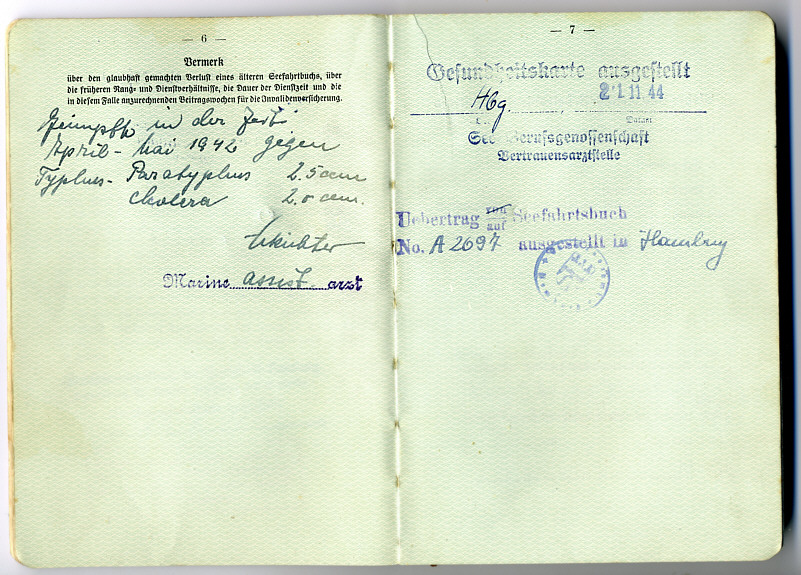 — 6 —
Vermerk
über den glaubhaft gemachten Verlust eines älteren Seefahrtbuchs, über
die früheren Rang- und Dienstverhältnisse, die Dauer der Dienstzeit und die
in diesem Falle anzurechnenden Beitragswochen für die Invalidenversicherung.
Geimpft in der Zeit
April - Mai 1942 gegen
Typhus- Paratyphus 2.5 ccm
Cholera 2.0 ccm.
Marine assist. arzt
— 7 —
Gesundheitskarte ausgestellt
Hbg. 21.11.44
Datum
See Berufsgenossenschaft
Vertrauensarztstelle
Uebertrag von
auf Seefahrtsbuch
No. A 2697 ausgestellt in Hamburg